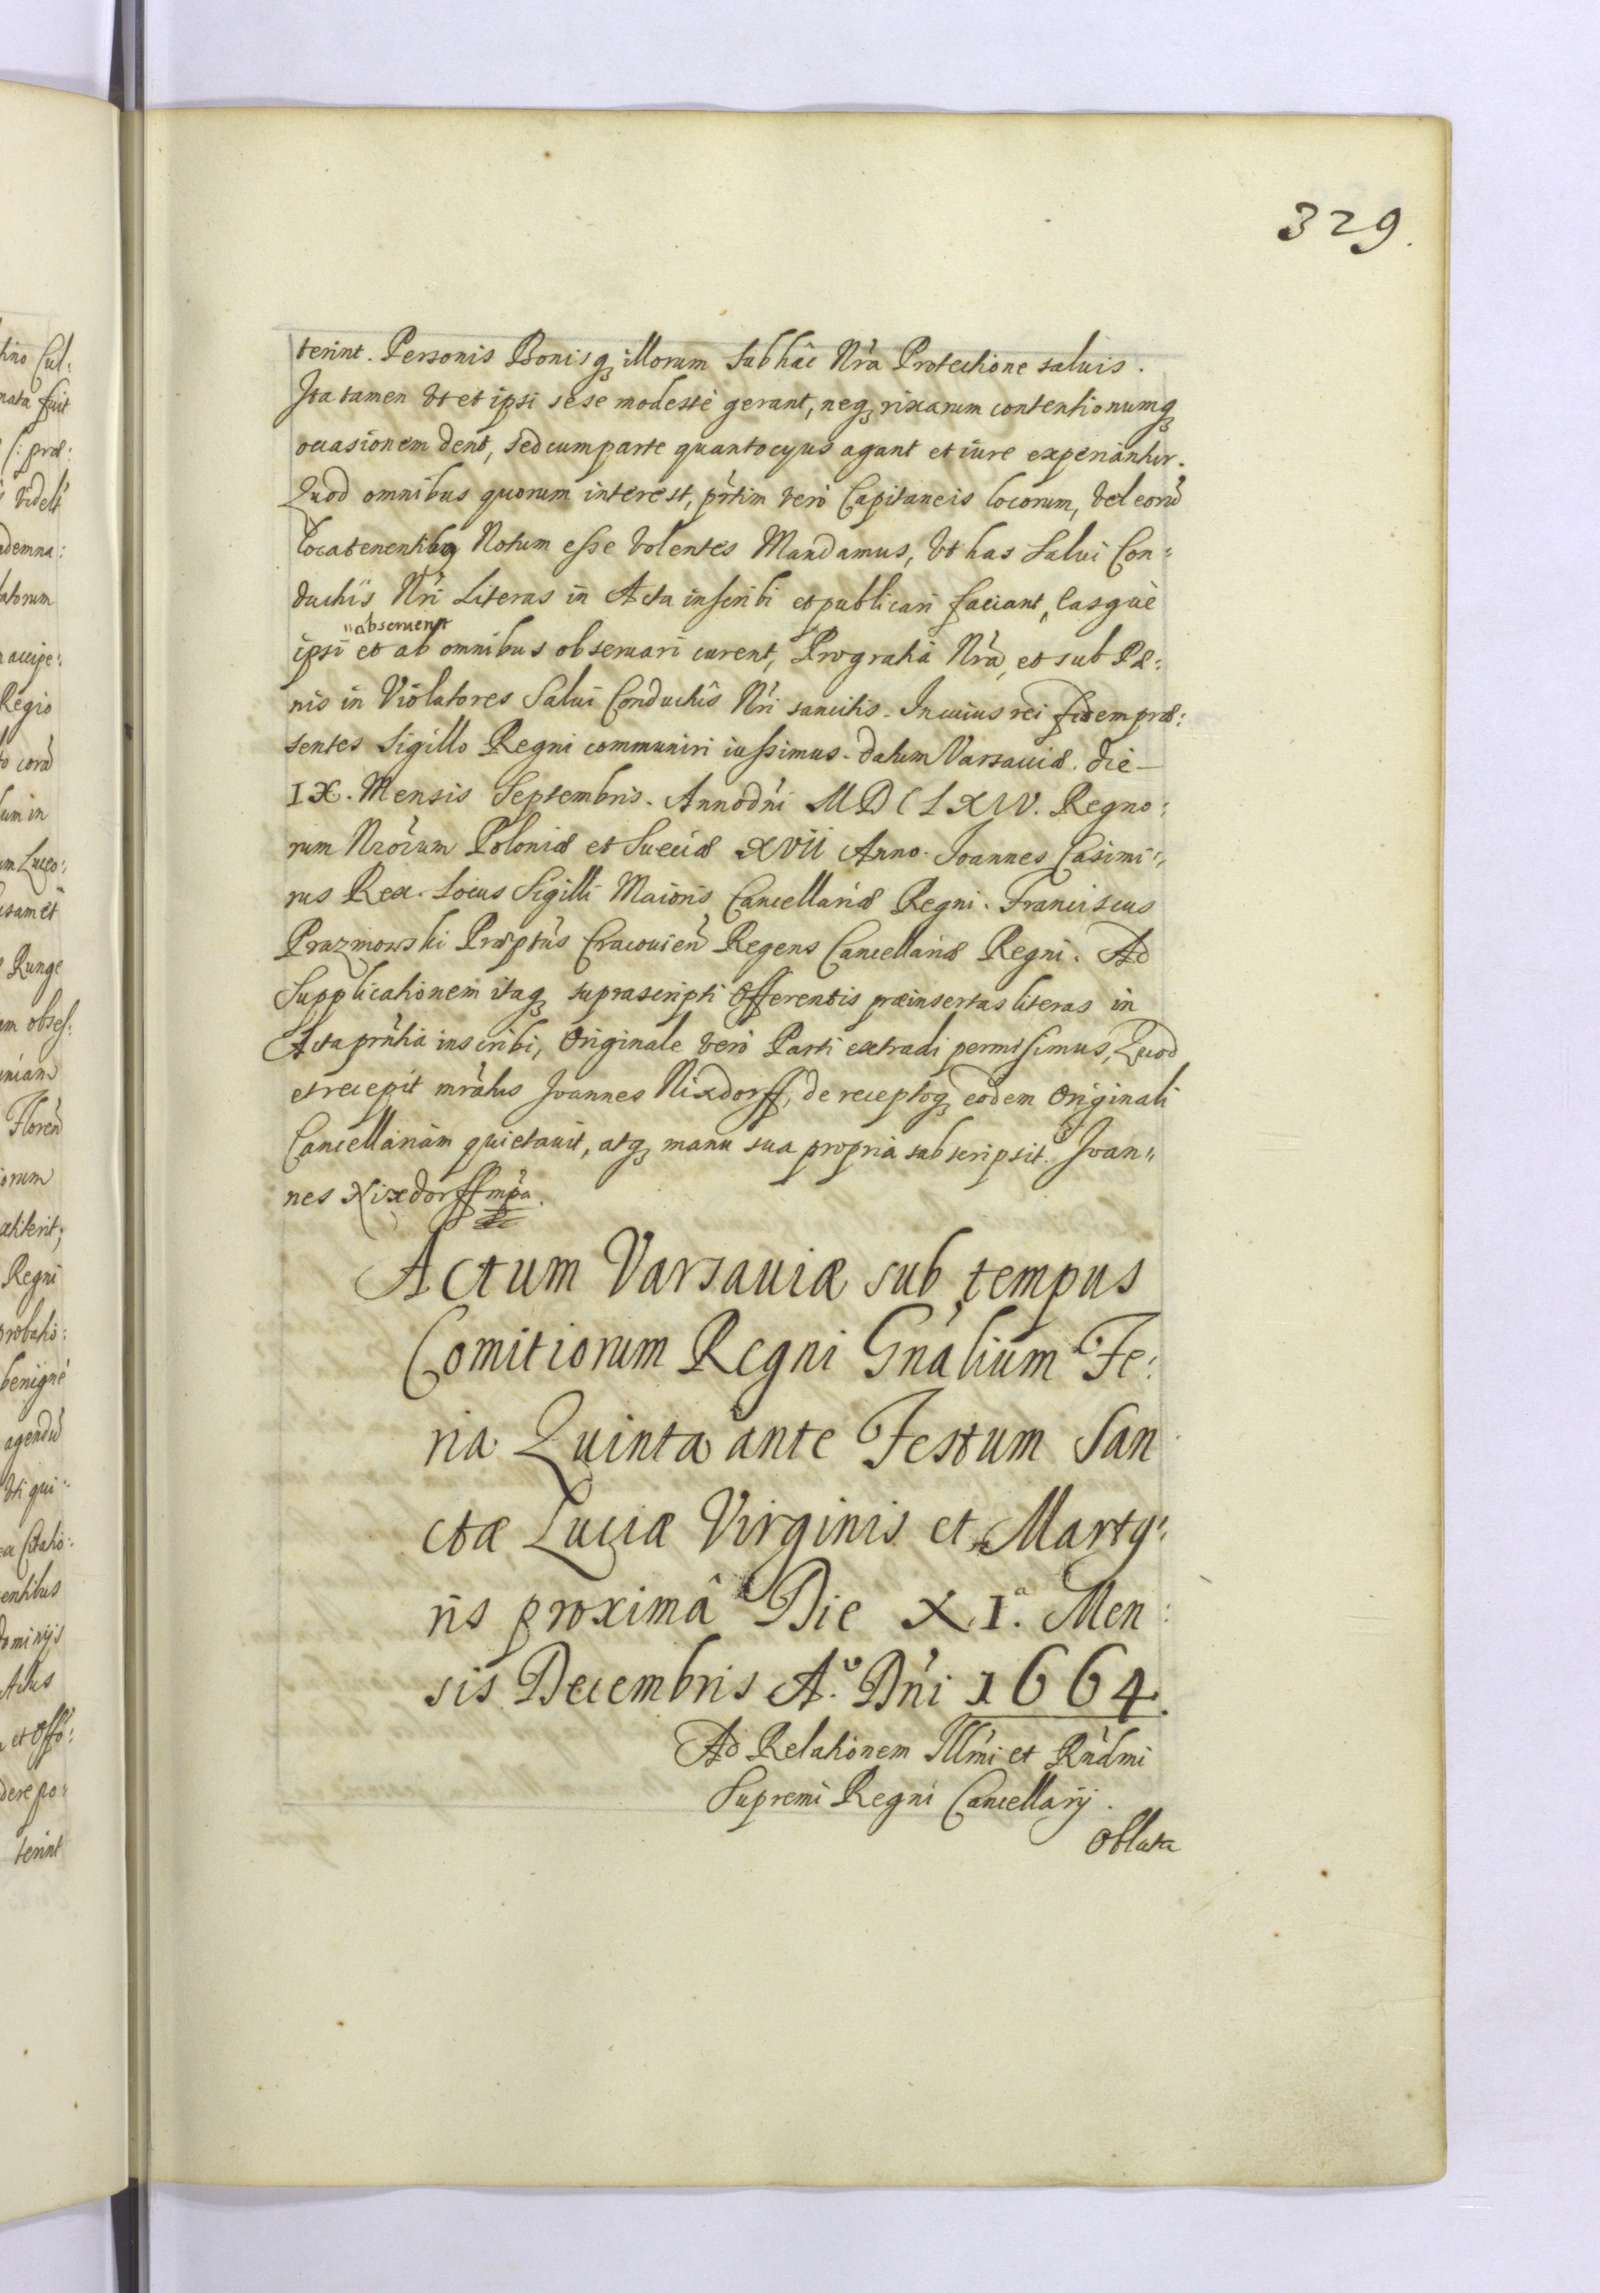 329.
terint. Personis Bonisq₃ illorum sub hâc Nr̃a Protectione saluis.
Ita tamen vt et ipsi sese modestè gerant, neq₃ rixarum contentionumq₃
occasionem dent, sed cum parte quantocyus agant et iure experiantur.
Quod omnibus quorum interest, pr̃tim verò Capitaneis locorum, vel eorũ
locatenentibq₃ Notum esse volentes Mandamus, vt has Salui Con:
ductûs Nr̃i Literas in Acta inscribi et publicari faciant, easquè
"obseruent
ipsi et ab omnibus obseruari curent, Pro gratia Nr̃a, et sub Pæ:
nis in Violatores Salui Conductûs Nr̃i sancitis. In cuius rei fidem præ:
sentes Sigillo Regni communiri iussimus. Datum Varsauiæ. die
IX. Mensis Septembris. Anno dñi MDCLXIV. Regno:
rum Nrõrum Poloniæ et Sueciæ XVII Anno. Joannes Casimi:
rus Rex. Locus Sigilli Maioris Cancellariæ Regni. Franciscus
Prazmowski Præptũs Cracouieñ Regens Cancellariæ Regni. Ad
Supplicationem itaq₃ suprascripti Offerentis præinsertas literas in
Acta prñtia inscribi, Originale verò Parti extradi permisimus, Quod
et recepit mr̃atus Joannes Nixdorff, de receptoq₃ eodem Originali
Cancellariam quietauit, atq₃ manu sua propria subscripsit. Joan"
nes Nixdorff mp̃a.
Actum Varsauiæ sub tempus
Comitiorum Regni Gñalium Fe:
ria Quinta ante Festum San
ctæ Luciæ Virginis et Marty:
ris proximâ Die XI.ª Men:
sis Decembris A.º Dñi 1664.
Ad Relationem Illm̃i et Rñdmi
Supremi Regni Cancellarij.
Oblata
tino Cul:
nata fuit
(: præ:
demna:
latorum
accipe:
Regio
corã
um in
um Luceo:
Runge
um obses:
Floreñ
orum
Regni
probatio:
benignè
agendũ
vti qui:
entibus
Dominijs
et Offo:
dere po:
terint